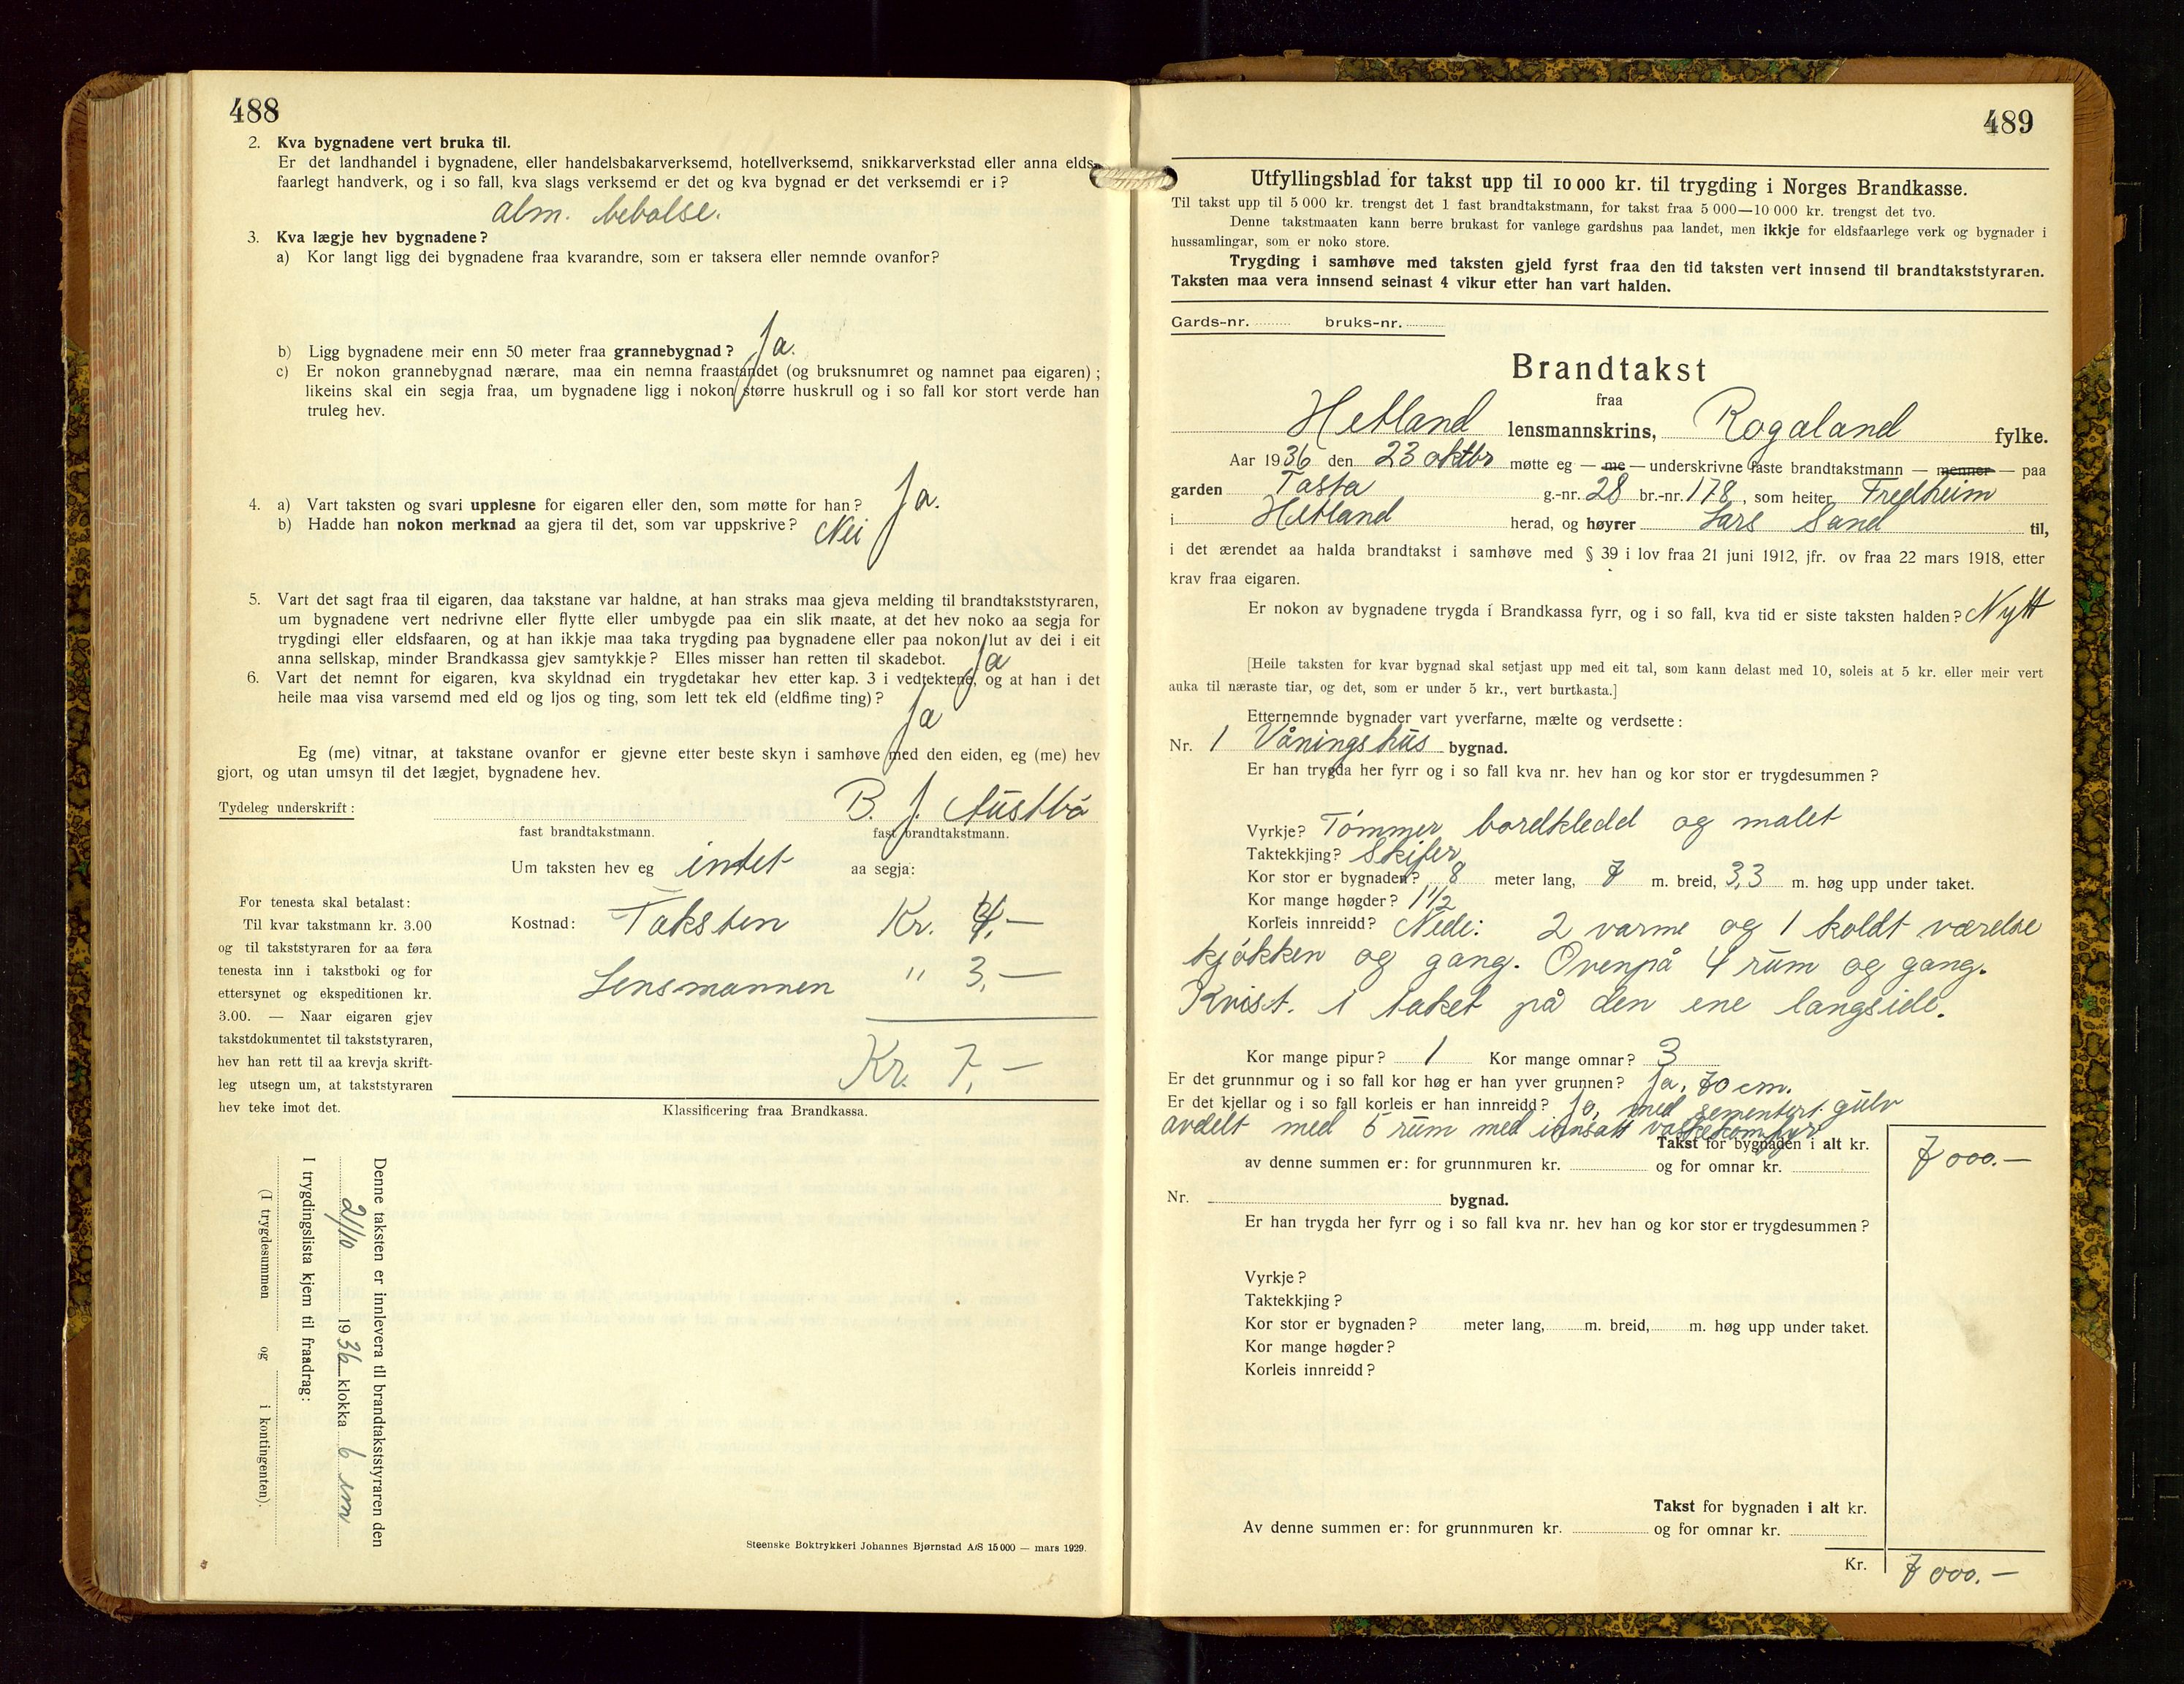 488
2. Kva bygnadene vert bruka til.
Er det landhandel i bygnadene, eller handelsbakarverksemd, hotellverksemd, snikkarverkstad eller anna elds-
faarlegt handverk, og i so fall, kva slags verksemd er det og kva bygnad er det verksemdi er i?
alm. bebolse.
3. Kva lægje hev bygnadene?
a) Kor langt ligg dei bygnadene fraa kvarandre, som er taksera eller nemnde ovanfor?
b) Ligg bygnadene meir enn 50 meter fraa grannebygnad? Ja.
c) Er nokon grannebygnad nærare, maa ein nemna fraastandet (og bruksnumret og namnet paa eigaren);
likeins skal ein segja fraa, um bygnadene ligg i nokon større huskrull og i so fall kor stort verde han
truleg hev.
4. a) Vart taksten og svari upplesne for eigaren eller den, som møtte for han? Ja.
b) Hadde han nokon merknad aa gjera til det, som var uppskrive? Nei
5. Vart det sagt fraa til eigaren, daa takstane var haldne, at han straks maa gjeva melding til brandtakststyraren,
um bygnadene vert nedrivne eller flytte eller umbygde paa ein slik maate, at det hev noko aa segja for
trygdingi eller eldsfaaren, og at han ikkje maa taka trygding paa bygnadene eller paa nokon lut av dei i eit
anna sellskap, minder Brandkassa gjev samtykkje? Elles misser han retten til skadebot. Ja
6. Vart det nemnt for eigaren, kva skyldnad ein trygdetakar hev etter kap. 3 i vedtektene, og at han i det
heile maa visa varsemd med eld og ljos og ting, som lett tek eld (eldfime ting)? Ja
Eg (me) vitnar, at takstane ovanfor er gjevne etter beste skyn i samhøve med den eiden, eg (me) hev
gjort, og utan umsyn til det lægjet, bygnadene hev.
Tydeleg underskrift: B. J. Austbö
fast brandtakstmann. fast brandtakstmann.
Um taksten hev eg intet aa segja:
For tenesta skal betalast:
Til kvar takstmann kr. 3.00
og til takststyraren for aa føra
tenesta inn i takstboki og for
ettersynet og ekspeditionen kr.
3.00. — Naar eigaren gjev
takstdokumentet til takststyraren,
hev han rett til aa krevja skrift-
leg utsegn um, at takststyraren
hev teke imot det.
Kostnad: Taksten Kr. 4,—
Lensmannen " 3,—
Kr. 7,—
Klassificering fraa Brandkassa.
Denne taksten er innlevera til brandtakststyraren den
19 36 klokka 6 em
I trygdingslista kjem til fraadrag:
(I trygdesummen og i kontingenten).
Steenske Boktrykkeri Johannes Bjørnstad A/S 15000 — mars 1929.
489
Utfyllingsblad for takst upp til 10 000 kr. til trygding i Norges Brandkasse.
Til takst upp til 5 000 kr. trengst det 1 fast brandtakstmann, for takst fraa 5 000—10 000 kr. trengst det tvo.
Denne takstmaaten kann berre brukast for vanlege gardshus paa landet, men ikkje for eldsfaarlege verk og bygnader i
hussamlingar, som er noko store.
Trygding i samhøve med taksten gjeld fyrst fraa den tid taksten vert innsend til brandtakststyraren.
Taksten maa vera innsend seinast 4 vikur etter han vart halden.
Gards-nr. bruks-nr.
Brandtakst
fraa
Hetland lensmannskrins, Rogaland fylke.
Aar 1936 den 23 oktbr møtte eg — me — underskrivne faste brandtakstmann — menner — paa
garden Tasta g.-nr. 28 br.-nr. 178, som heiter Fredheim
i Hetland herad, og høyrer Lars Sand til,
i det ærendet aa halda brandtakst i samhøve med § 39 i lov fraa 21 juni 1912, jfr. ov fraa 22 mars 1918, etter
krav fraa eigaren.
Er nokon av bygnadene trygda i Brandkassa fyrr, og i so fall, kva tid er siste taksten halden? Nytt
[Heile taksten for kvar bygnad skal setjast upp med eit tal, som kann delast med 10, soleis at 5 kr. eller meir vert
auka til næraste tiar, og det, som er under 5 kr., vert burtkasta.]
Etternemnde bygnader vart yverfarne, mælte og verdsette:
Nr. 1 Våningshus bygnad.
Er han trygda her fyrr og i so fall kva nr. hev han og kor stor er trygdesummen?
Vyrkje? Tömmer bordkledd og malet
Taktekkjing? Skifer
Kor stor er bygnaden? 8 meter lang, 7 m. breid, 3,3 m. høg upp under taket.
Kor mange høgder? 1 1/2
Korleis innreidd? Nede: 2 varme og 1 koldt værelse
kjökken og gang. Ovenpå 4 rum og gang.
Kvist. i taket på den ene langside.
Kor mange pipur? 1 Kor mange omnar? 3
Er det grunnmur og i so fall kor høg er han yver grunnen? Ja, 70 cm.
Er det kjellar og i so fall korleis er han innreidd? Ja, med sementert gulv
avdelt med 5 rum med innsatt vaskekomfyr
Takst for bygnaden i alt kr. 7000.—
av denne summen er: for grunnmuren kr. og for omnar kr.
Nr. bygnad.
Er han trygda her fyrr og i so fall kva nr. hev han og kor stor er trygdesummen?
Vyrkje?
Taktekkjing?
Kor stor er bygnaden? meter lang, m. breid, m. høg upp under taket.
Kor mange høgder?
Korleis innreidd?
Takst for bygnaden i alt kr.
Av denne summen er: for grunnmuren kr. og for omnar kr.
Kr. 7000.—